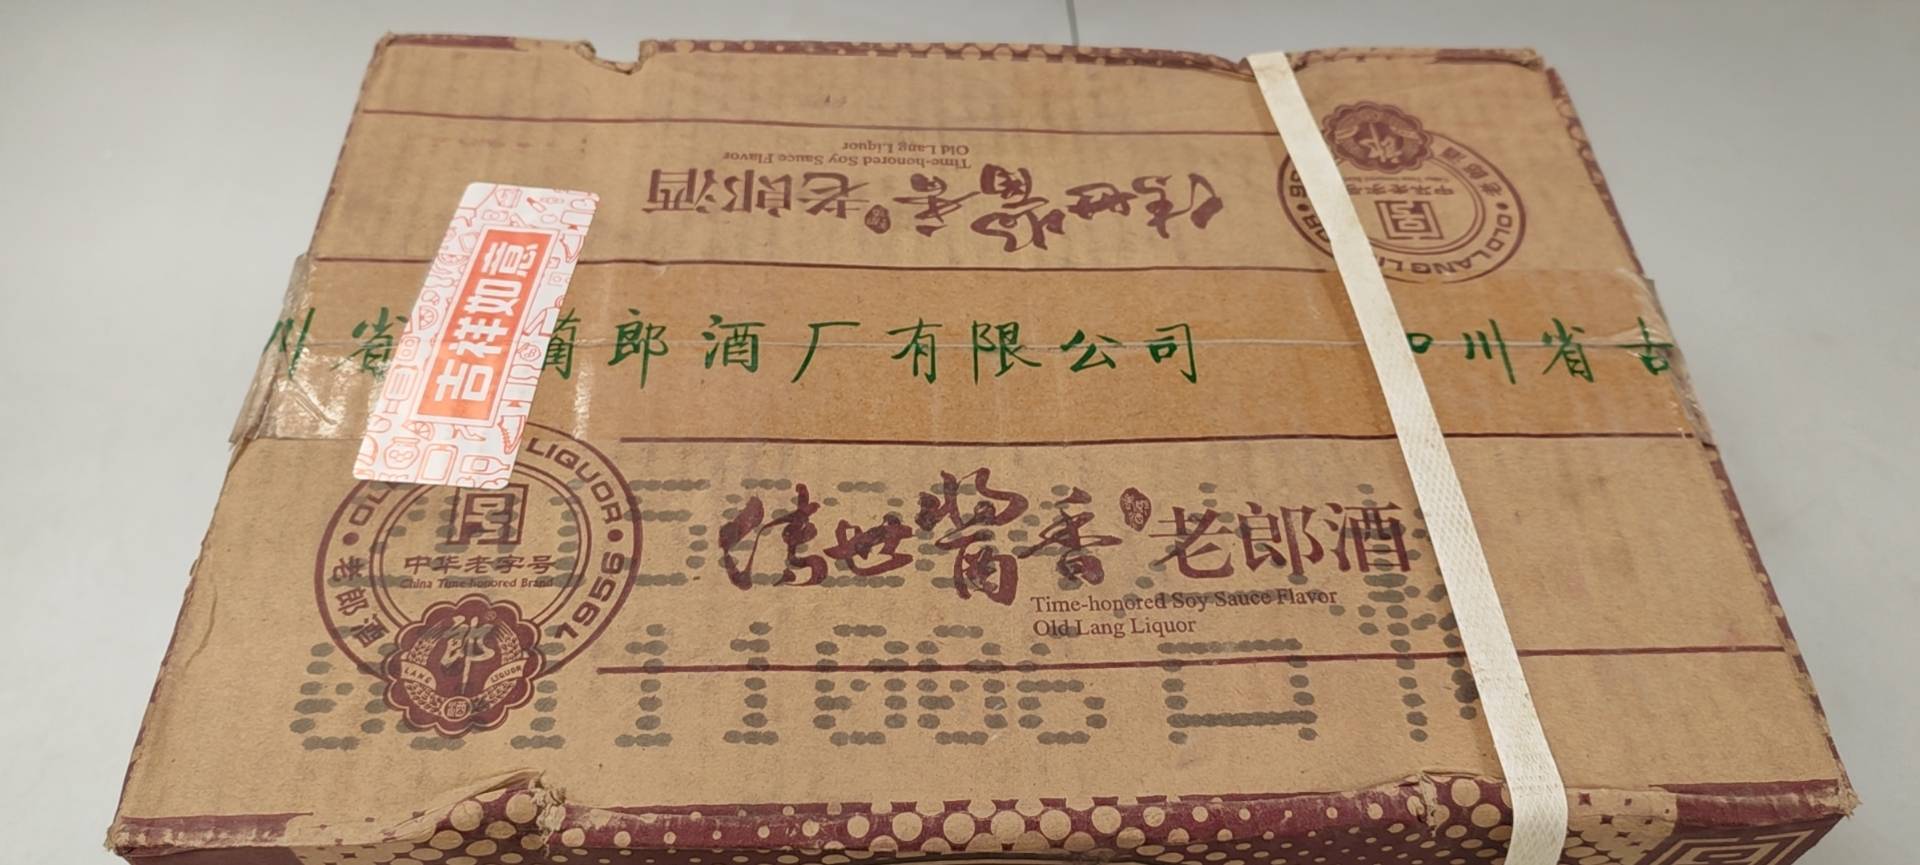 老郎酒
OLD LANG LI
1956
中华老字号
传世酱香老郎酒
Time-honored Soy Sauce Flavor
Old Lang Liquor
吉祥如意
川省
蔺郎酒厂有限公司
川省古
LIQUOR
1956
老郎酒
中华老字号
China Time-honored Brand
郎
LANG LIQUOR
酒
传世酱香老郎酒
Time-honored Soy Sauce Flavor
Old Lang Liquor